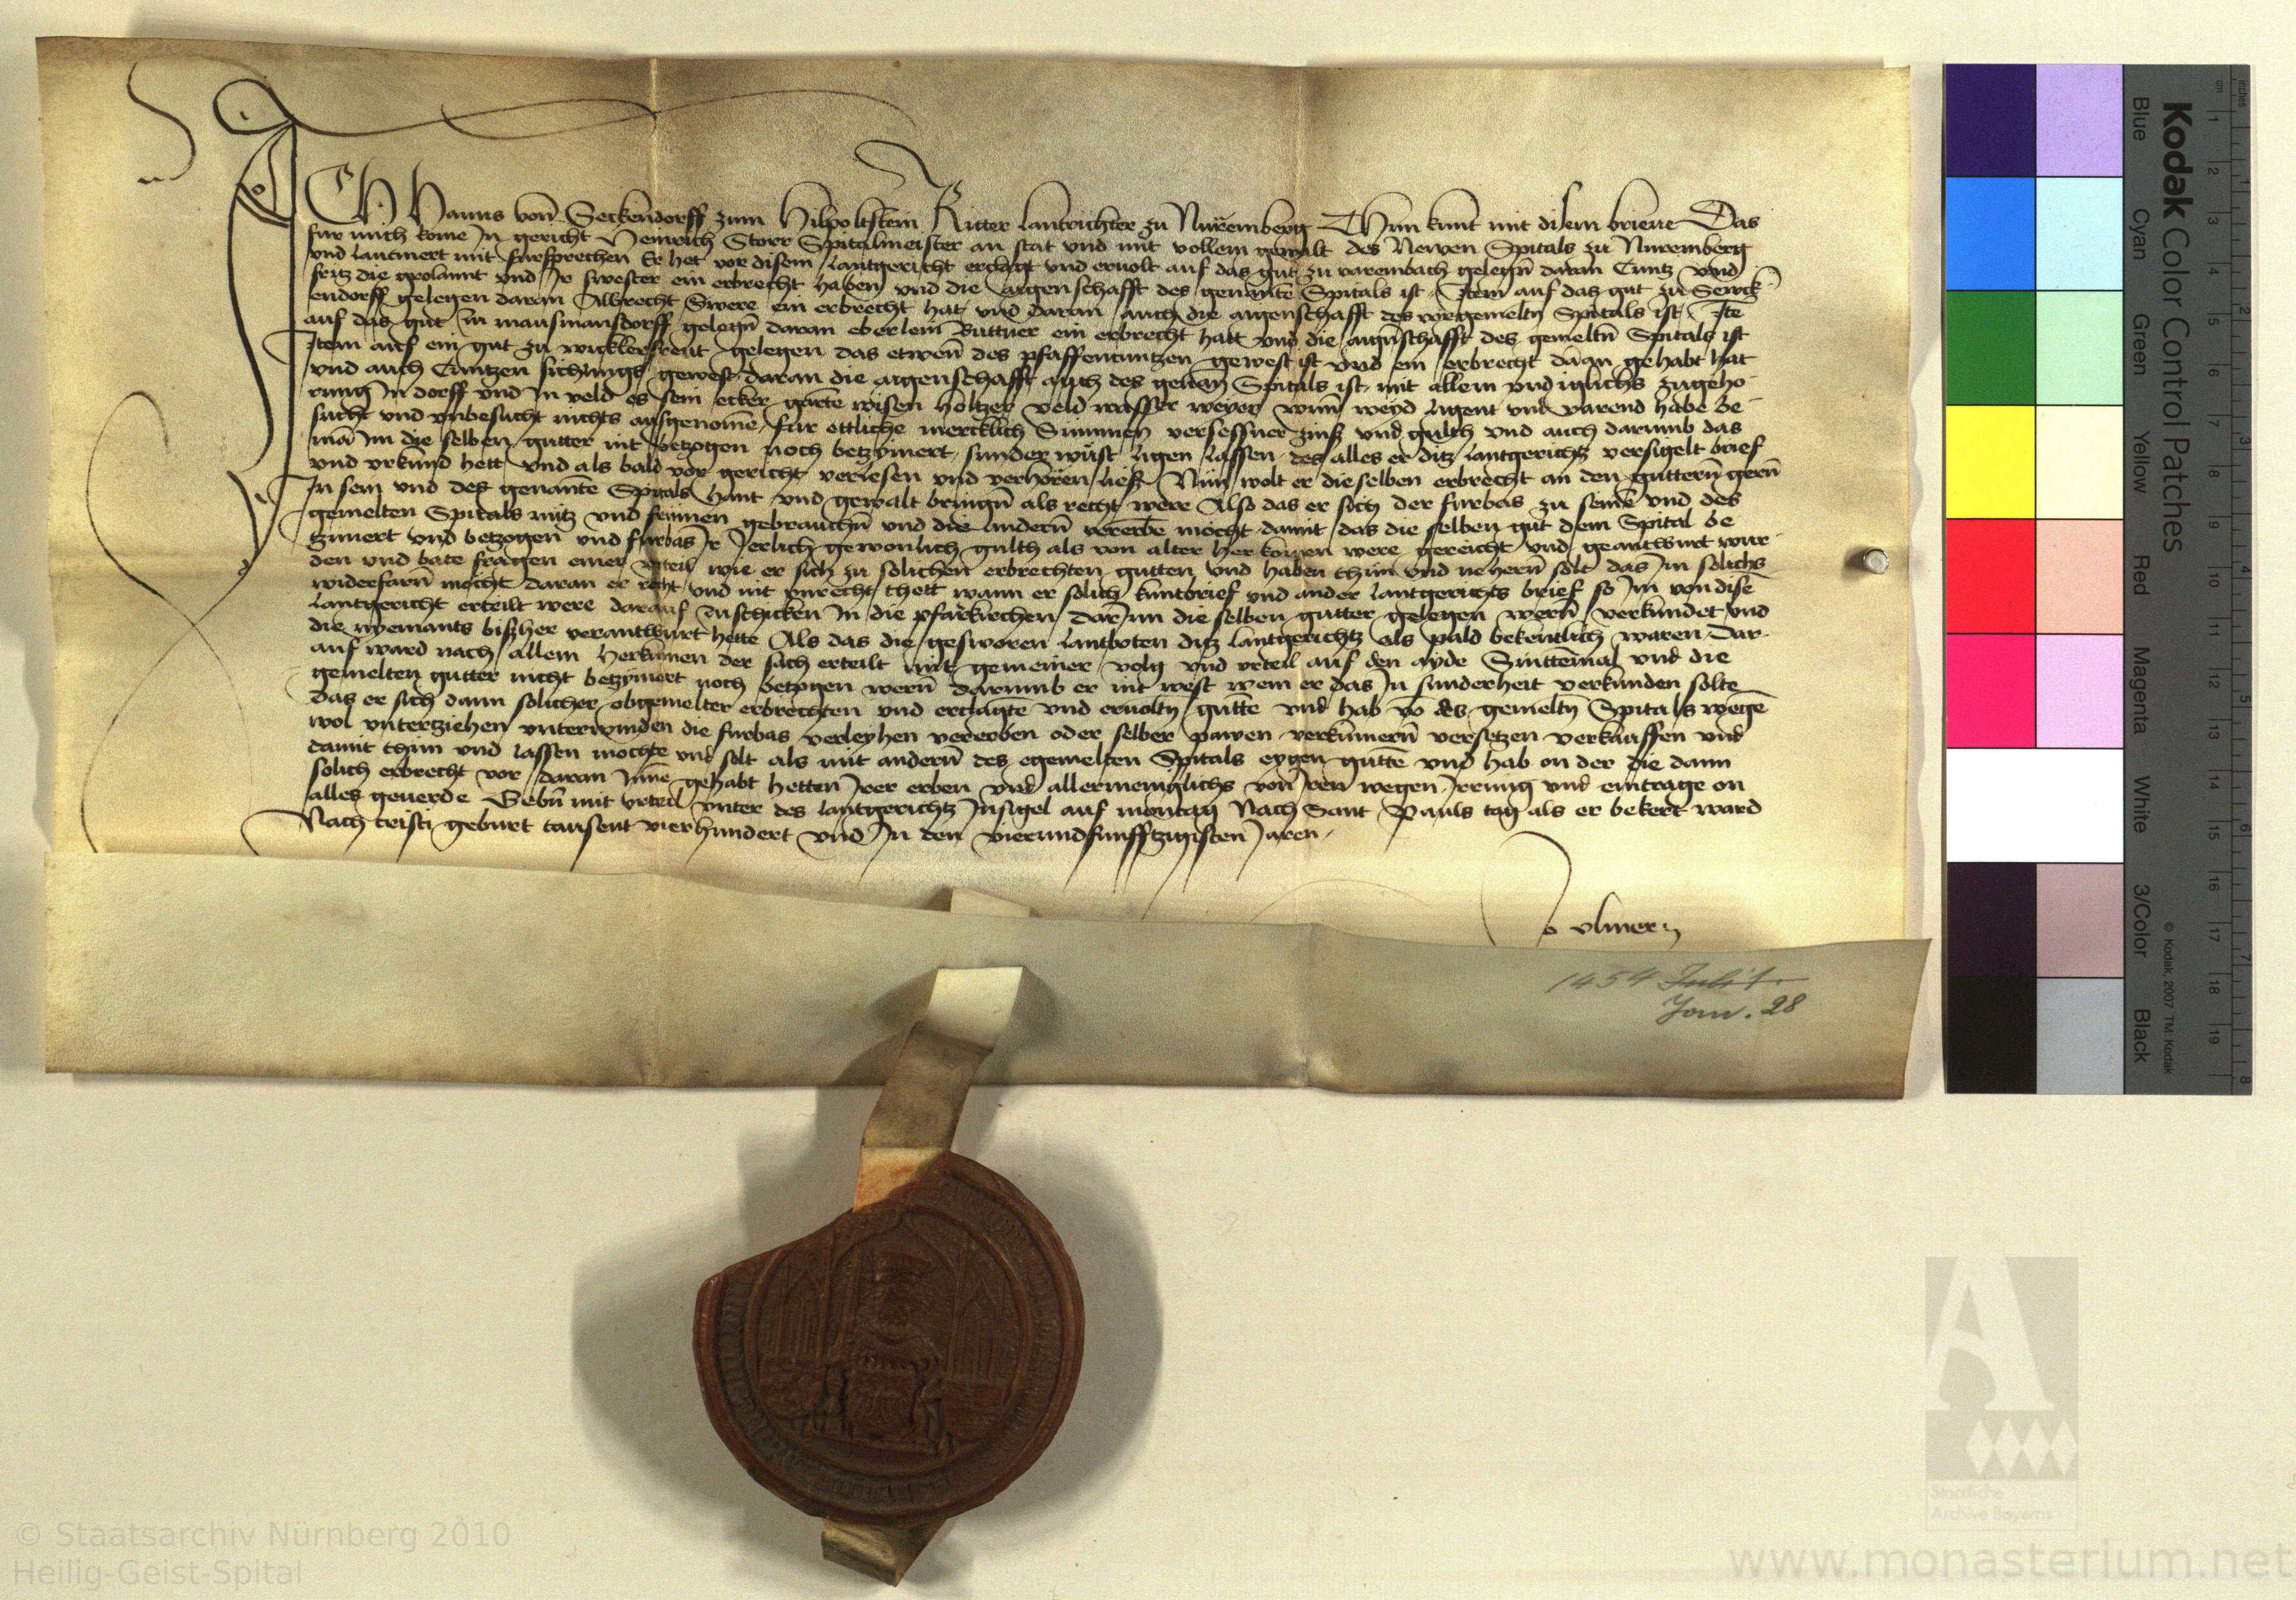 ICh Hanns von Seckendorff zum Hilpoltstein Ritter lantrichter zu Nuremberg Thun kunt mit disem brieue Das
fur mich kome In gericht Heinrich Storr Spitalmeister an stat vnd mit vollem gewalt des Newen Spitals zu Nuremberg
vnd lautmert mit fursprechen Er het vor disem lantgericht erclagt vnd eruolt auf das gut zu varembach gelegn daran Cuntz vnd
fritz die geolannt vnd Ir swester ein erbrecht haben vnd die aigenschafft des genante Spitals ist Item auf das gut zu Seuck
endorff gelegen daran Albrecht Swere ein erbrecht hat vnd daran auch die aigenschafft des vorgemeltn Spitals ist Ite
auf das gut in mausmansdorff gelegn daran eberlein Buttner ein erbrecht hatt vnd die aigenschafft des gemeltn Spitals ist
Item auf ein gut zu wickleßreut gelegen das etwen des pfaffencuntzen gewest ist vnd ein erbrecht daran gehabt hat
vnd auch Cuntzen sichlings gewest daran die aigenschafft auch des genan Spitals ist mit allem vnd iglichs zugeho
rung In dorff vnd In veld es sein ecker garte wisen holtzer veld wasser weyer wun weyd ligent vnd varend habe be
sucht vnd vnbesucht nichts ausgenome fur ettliche mercklich Summen versessner zinß vnd gulth vnd auch darumb das
ma Im die selben gutter nit betzogen noch betzymert sunder wüst ligen lassen des alles er ditz lantgerichtz versigelt brief
vnd vrkund hett vnd als bald vor gericht verlesen vnd verhören ließ Nün wolt er dieselben erbrecht an den guttern gern
In sein vnd des genante Spitals hant vnd gewalt bringn als recht were Also das er sich der furbas zu seine vnd des
gemelten Spitals nutz vnd frümen gebrauchn vnd die andern vererbe möcht damit das die selben gut dem Spital be
tzimert vnd betzogen vnd furbas Ir Jerlich gewonlich gulth als von alter herkomen were gereicht vnd geantwurt wur
den vnd bate fragen einer vrteil wie er sich zu solichen erbrechten gutten vnd haben thun vnd nehern solt das Im solichs
widerfarn mocht daran er recht vnd nit vnrecht thett wann er solich kuntbrief vnd ander lantgerichts brief so Im von dise
lantgericht erteilt were darauf Inschicken In die pfarkirchen dar Inn die selben gutter gelegen wern verkundet vnd
die nyemants bißher verantwurt hette Als das die gesworen lantboten ditz lantgerichtz als pald bekentlich waren Dar
auf ward nach allem herkumen der sach erteilt mit gemeiner volg vnd vrteil auf den ayde Sinttemal vnd die
gemelten gutter nicht betzymert noch betzogen wern darumb er nit west wem er das In sunderheit verkunden solte
das er sich dann solicher obgemelter erbrechten vnd erclagte vnd eruoltn gutte vnd hab vo des gemeltn Spitals wege
wol vntertziehen vnterwinden die furbas verleyhen vererben oder selber pawen verkumern versetzen verkauffen vnd
damit thun vnd lassen mochte vnd solt als mit andern des egemelten Spitals eygen gutte vnd hab on der die dann
solich erbrecht vor daran Inne gehabt hetten Irer erben vnd allermeniglichs von Iren wegen Irrung vnd eintrage on
alles geuerde Gebn mit vrteil vnter des lantgerichtz Insigel auf montag Nach Sant Pauls tag als er bekert ward
Nach cristi geburt tausent vierhundert vnd In den vierundfunfftzigisten Jaren
vlmer
1454 Juli 1.
Jan. 28
Kodak Color Control Patches
Blue Cyan Green Yellow Red Magenta White 3/Color Black
© Kodak, 2007 TM: Kodak
cm 1 2 3 4 5 6 7 8 9 10 11 12 13 14 15 16 17 18 19
inches 1 2 3 4 5 6 7 8
© Staatsarchiv Nürnberg 2010
Heilig-Geist-Spital
Staatliche
Archive Bayerns
www.monasterium.net